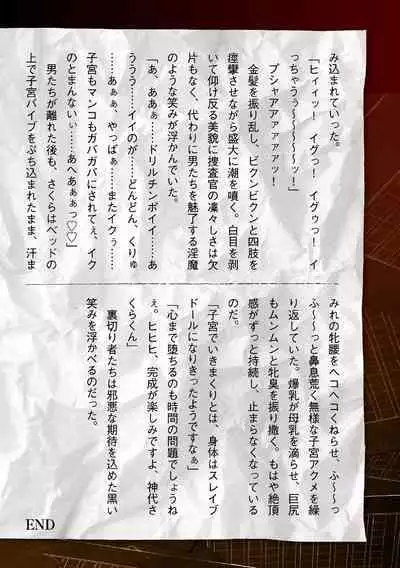 み込まれていった。
「ヒィィッ！　イグっ！　イグゥっ！　イ
っちゃうぅ～～～～～ッ！」
プシャアアァァァァァッ！
金髪を振り乱し、ビクンビクンと四肢を
痙攣させながら盛大に潮を噴く。白目を剥
いて仰け反る美貌に捜査官の凛々しさは欠
片もなく、代わりに男たちを魅了する淫魔
のような笑みが浮かんでいた。
「あ、ああぁ……ドリルチンポイイ……あ
ううう……イイのが……どんどん、くりゅ
……あぁぁ、やっばぁ……またイクぅ……
子宮もマンコもガバガバにされてぇ、イク
のとまんないぃ……あへあぁぁっ♡♡」
男たちが離れた後も、さくらはベッドの
上で子宮バイブをぶち込まれたまま、汗ま
みれの牝腰をヘコヘコくねらせ、ふ～～っ
ふ～～っと鼻息荒く無様な子宮アクメを繰
り返していた。爆乳が母乳を滴らせ、巨尻
もムンムンと牝臭を振り撒く。もはや絶頂
感がずっと持続し、止まらなくなっている
のだ。
「子宮でいきまくりとは、身体はスレイブ
ドールになりきったようですなぁ」
「心まで堕ちるのも時間の問題でしょうね
ぇ。ヒヒヒ、完成が楽しみですよ、神代さ
くらくん」
裏切り者たちは邪悪な期待を込めた黒い
笑みを浮かべるのだった。
END